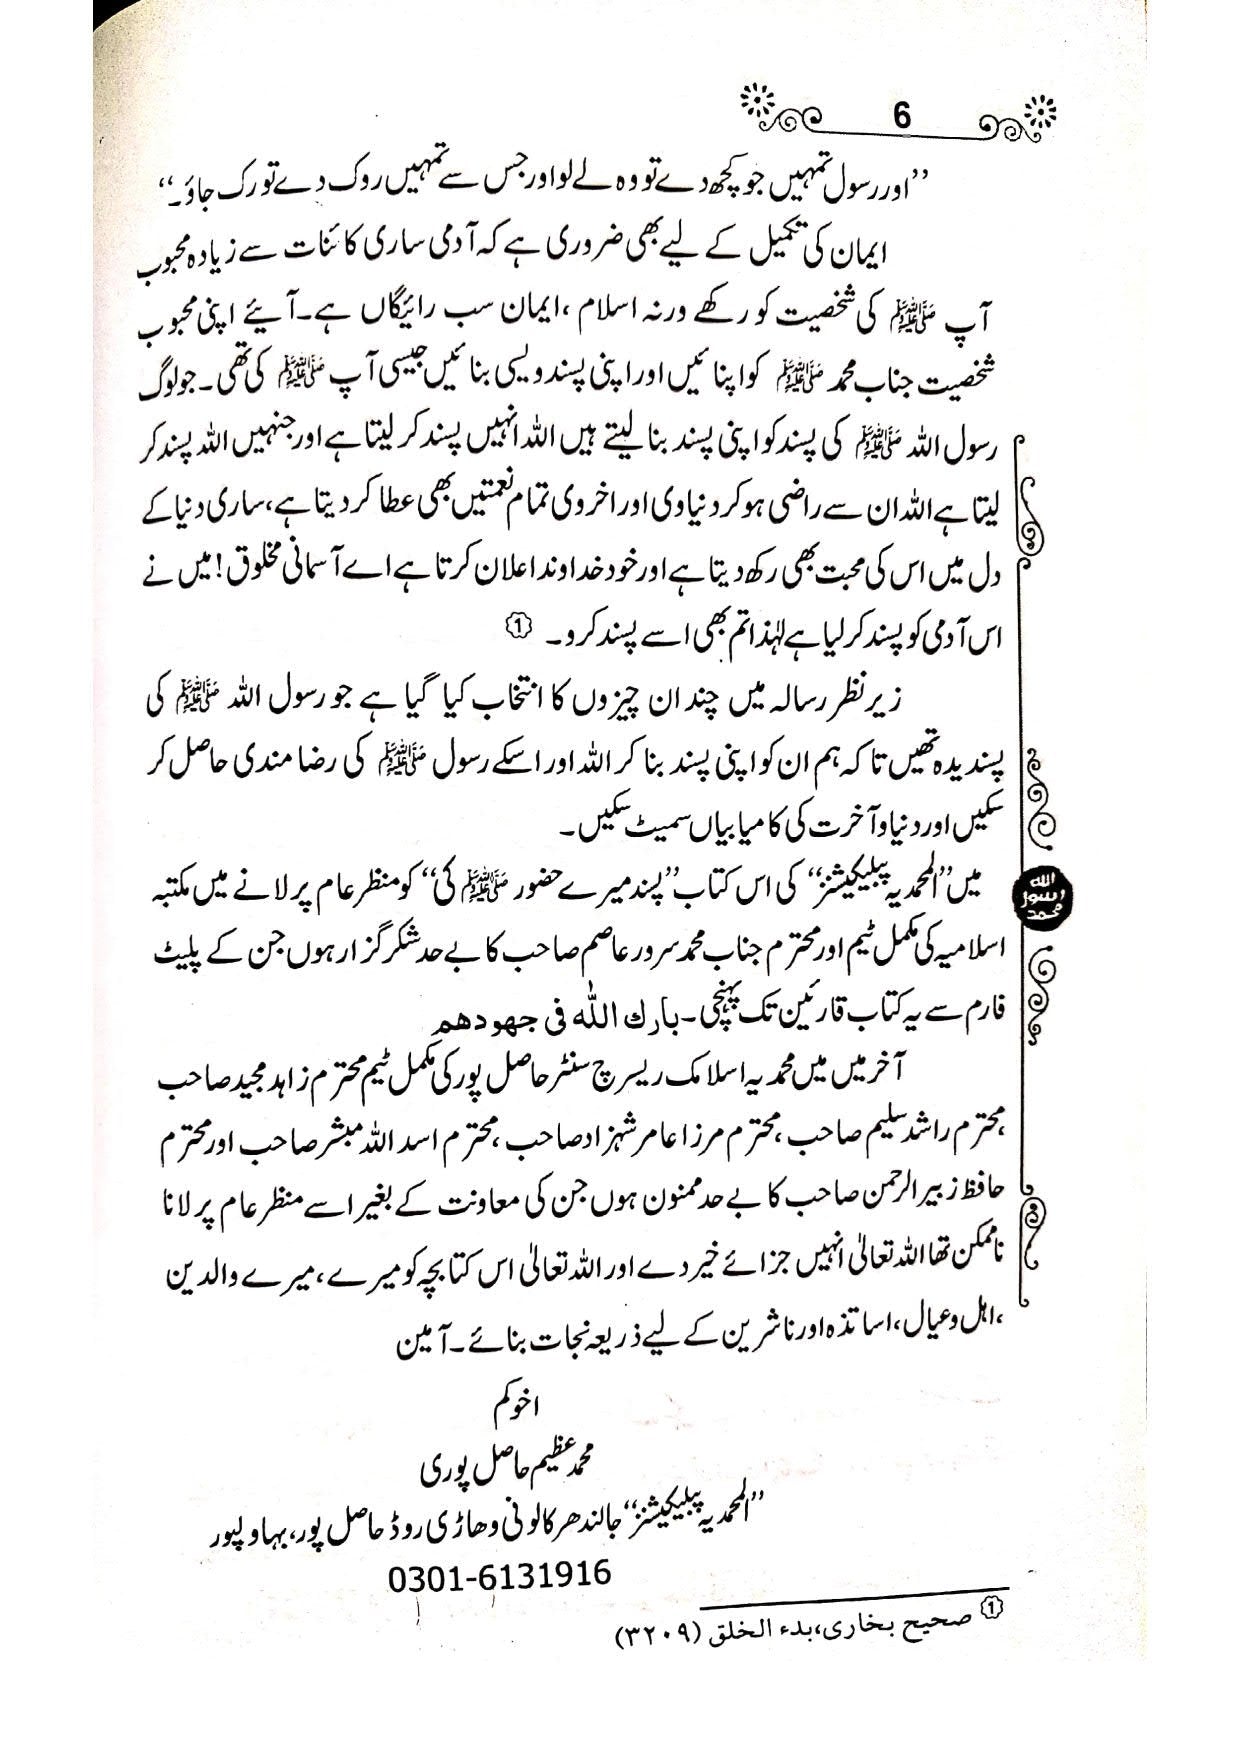 6
”اور رسول تمہیں جو کچھ دے تو وہ لے لو اور جس سے تمہیں روک دے تو رک جاؤ۔“
ایمان کی تکمیل کے لیے بھی ضروری ہے کہ آدمی ساری کائنات سے زیادہ محبوب
آپ ﷺ کی شخصیت کو رکھے ورنہ اسلام ،ایمان سب رائیگاں ہے۔آیئے اپنی محبوب
شخصیت جناب محمد ﷺ کو اپنائیں اور اپنی پسند ویسی بنائیں جیسی آپ ﷺ کی تھی۔ جو لوگ
رسول اللہ ﷺ کی پسند کو اپنی پسند بنا لیتے ہیں اللہ انہیں پسند کر لیتا ہے اور جنہیں اللہ پسند کر
لیتا ہے اللہ ان سے راضی ہو کر دنیاوی اور اخروی تمام نعمتیں بھی عطا کر دیتا ہے، ساری دنیا کے
دل میں اس کی محبت بھی رکھ دیتا ہے اور خود خداوند اعلان کرتا ہے اے آسمانی مخلوق! میں نے
اس آدمی کو پسند کر لیا ہے لہٰذا تم بھی اسے پسند کرو۔ ①
زیر نظر رسالہ میں چند ان چیزوں کا انتخاب کیا گیا ہے جو رسول اللہ ﷺ کی
پسندیدہ تھیں تا کہ ہم ان کو اپنی پسند بنا کر اللہ اور اسکے رسول ﷺ کی رضا مندی حاصل کر
سکیں اور دنیا و آخرت کی کامیابیاں سمیٹ سکیں۔
میں ”المحمدیہ پبلیکیشنز“ کی اس کتاب ”پسند میرے حضور ﷺ کی“ کو منظر عام پر لانے میں مکتبہ
اسلامیہ کی مکمل ٹیم اور محترم جناب محمد سرور عاصم صاحب کا بے حد شکر گزار ہوں جن کے پلیٹ
فارم سے یہ کتاب قارئین تک پہنچی۔ بارك الله فى جهودهم
آخر میں میں محمدیہ اسلامک ریسرچ سنٹر حاصل پور کی مکمل ٹیم محترم زاہد مجید صاحب
،محترم راشد سلیم صاحب ،محترم مرزا عامر شہزاد صاحب ،محترم اسد اللہ مبشر صاحب اور محترم
حافظ زبیر الرحمن صاحب کا بے حد ممنون ہوں جن کی معاونت کے بغیر اسے منظر عام پر لانا
ناممکن تھا اللہ تعالیٰ انہیں جزائے خیر دے اور اللہ تعالیٰ اس کتابچہ کو میرے، میرے والدین
،اہل و عیال، اساتذہ اور ناشرین کے لیے ذریعہ نجات بنائے۔ آمین
اخوکم
محمد عظیم حاصل پوری
”المحمدیہ پبلیکیشنز“ جالندھر کالونی وہاڑی روڈ حاصل پور، بہاولپور
0301-6131916
① صحیح بخاری، بدء الخلق (۳۲۰۹)
الله
رسول
محمد